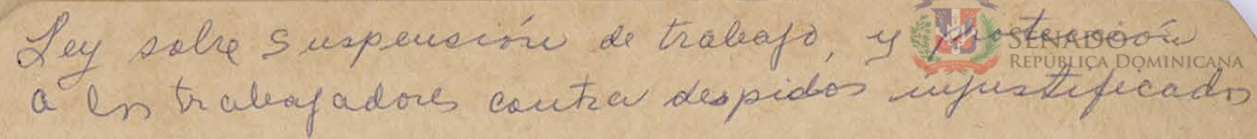 Ley sobre Suspensión de trabajo, y protección
a los trabajadores contra despidos injustificados
SENADO
REPÚBLICA DOMINICANA